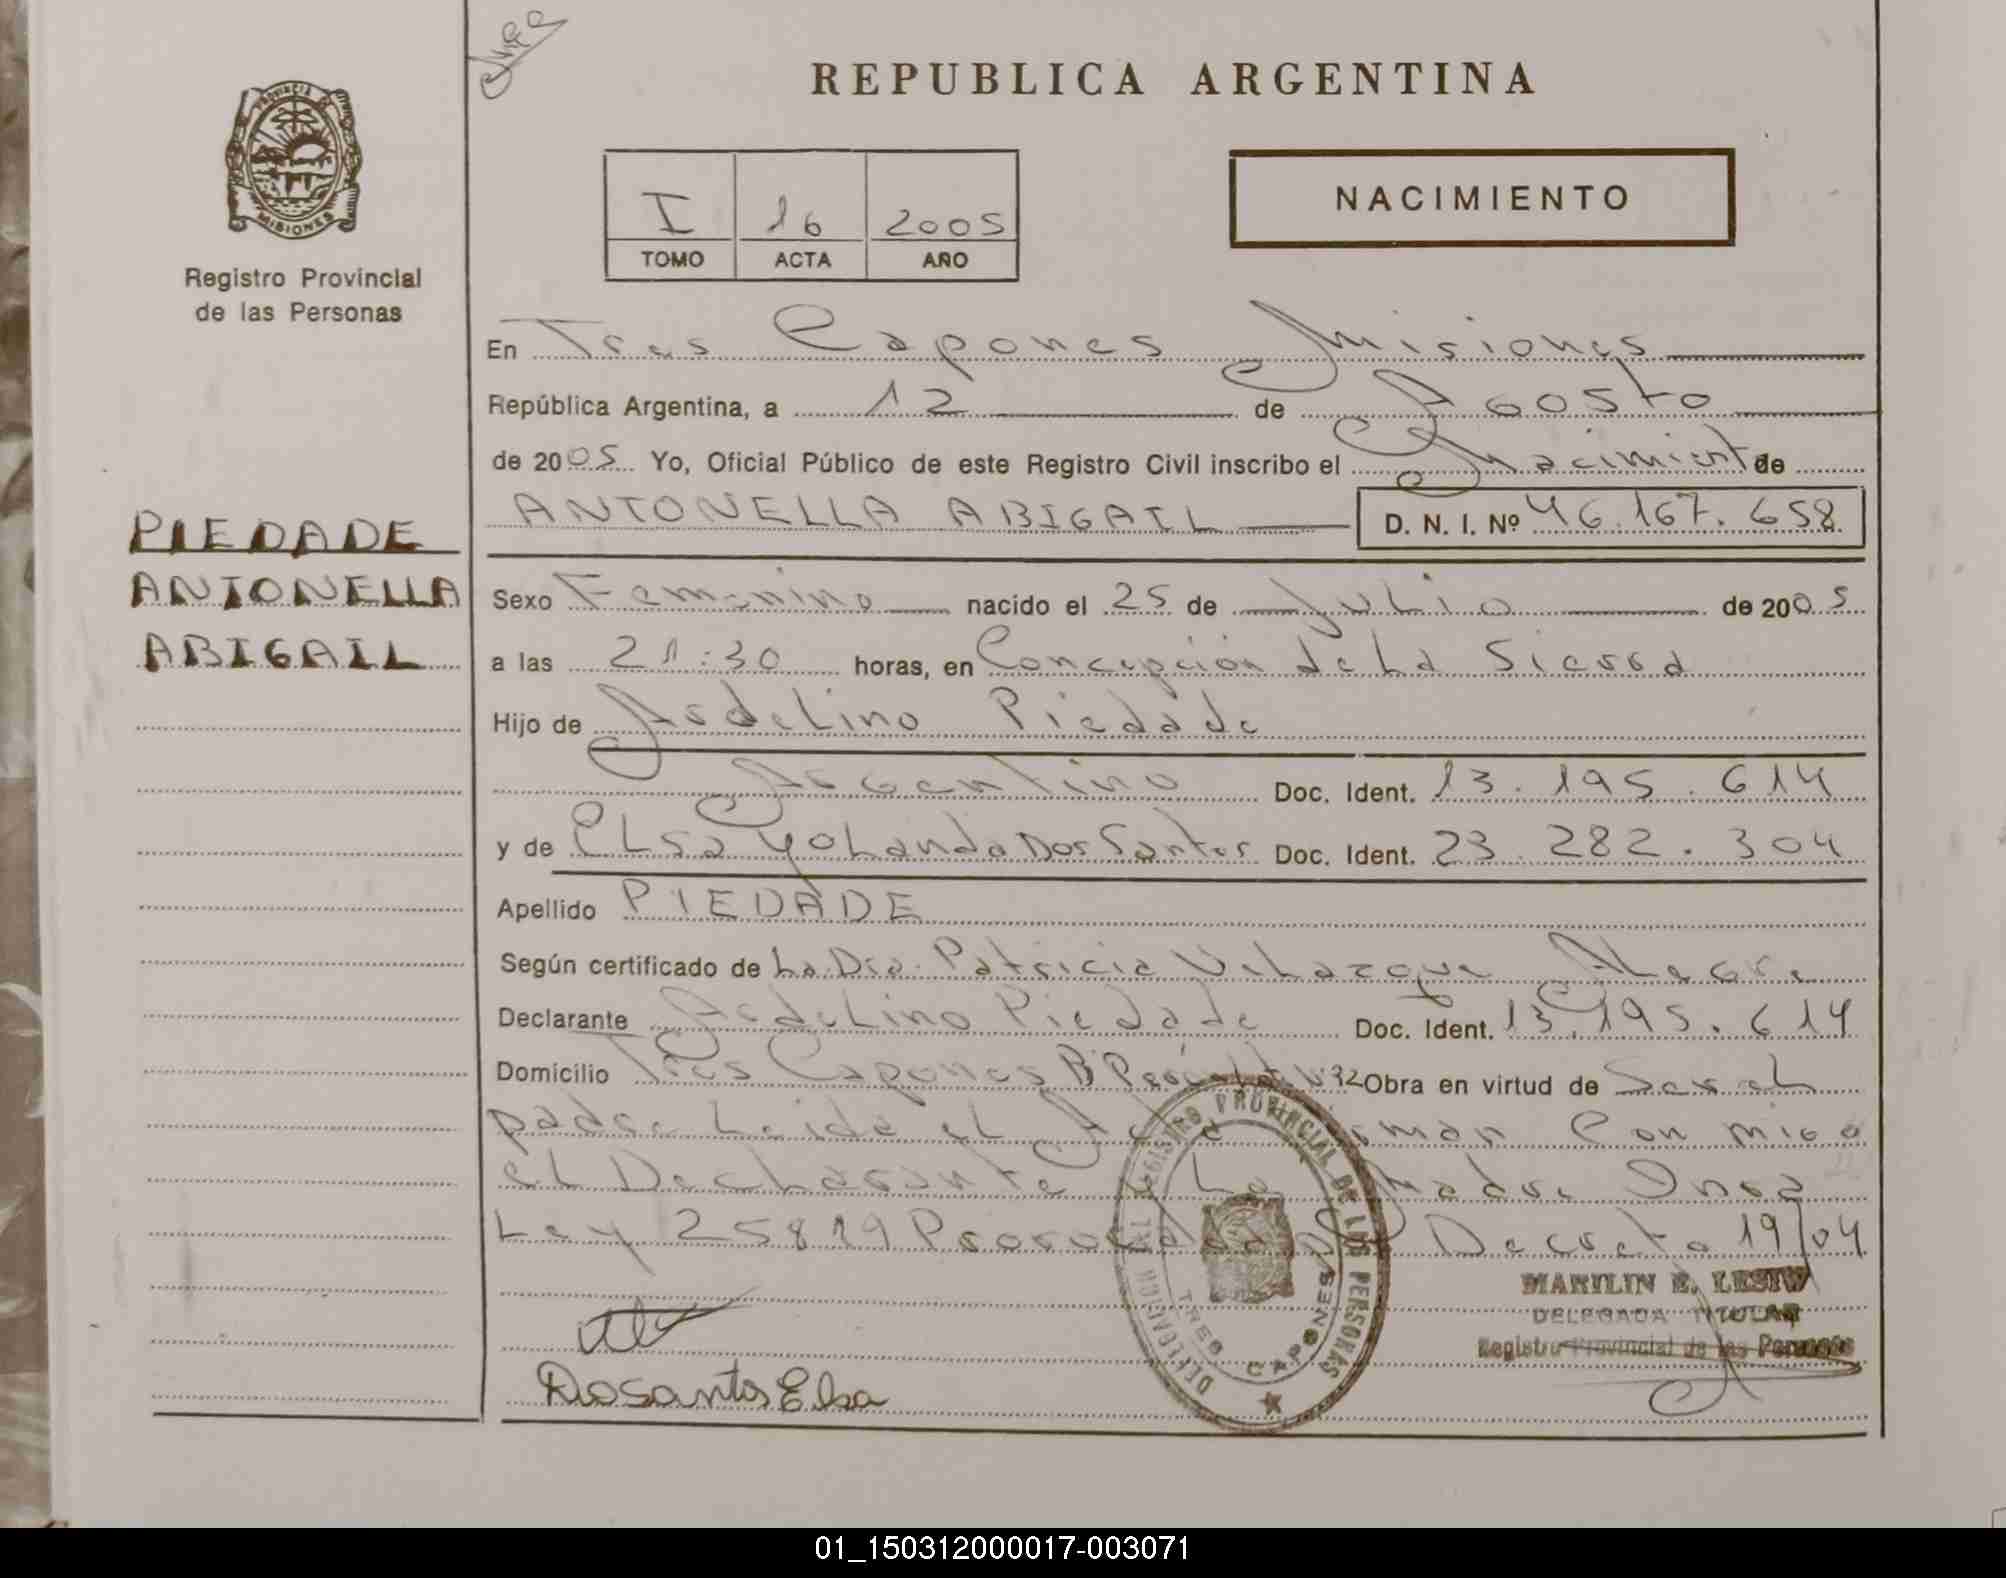 REPUBLICA ARGENTINA
PROVINCIA DE MISIONES
Registro Provincial
de las Personas
I 16 2005
TOMO ACTA AÑO
NACIMIENTO
En Tres Capones Misiones
República Argentina, a 12 de Agosto
de 2005 Yo, Oficial Público de este Registro Civil inscribo el Nacimiento de
ANTONELLA ABIGAIL D. N. I. Nº 46.167.658
PIEDADE
ANTONELLA
ABIGAIL
Sexo Femenino nacido el 25 de Julio de 2005
a las 21:30 horas, en Concepción de La Sierra
Hijo de Ardelino Piedade
Argentino Doc. Ident. 13.195.614
y de Elsa Yolanda Dos Santos Doc. Ident. 23.282.304
Apellido PIEDADE
Según certificado de La Dra. Patricia Velazque Alegre
Declarante Ardelino Piedade Doc. Ident. 13.195.614
Domicilio Tres Capones Bº Nº 32 Obra en virtud de Ser el
padre Leida el Acta Firman Conmigo
el Declarante y La Madre
Ley 25819 Prorrogada Decreto 19/04
MARILIN E. LESIW
DELEGADA TITULAR
Registro Provincial de las Personas
DELEGACION REGISTRO PROVINCIAL DE LAS PERSONAS
TRES CAPONES
Dosantos Elsa
01_150312000017-003071